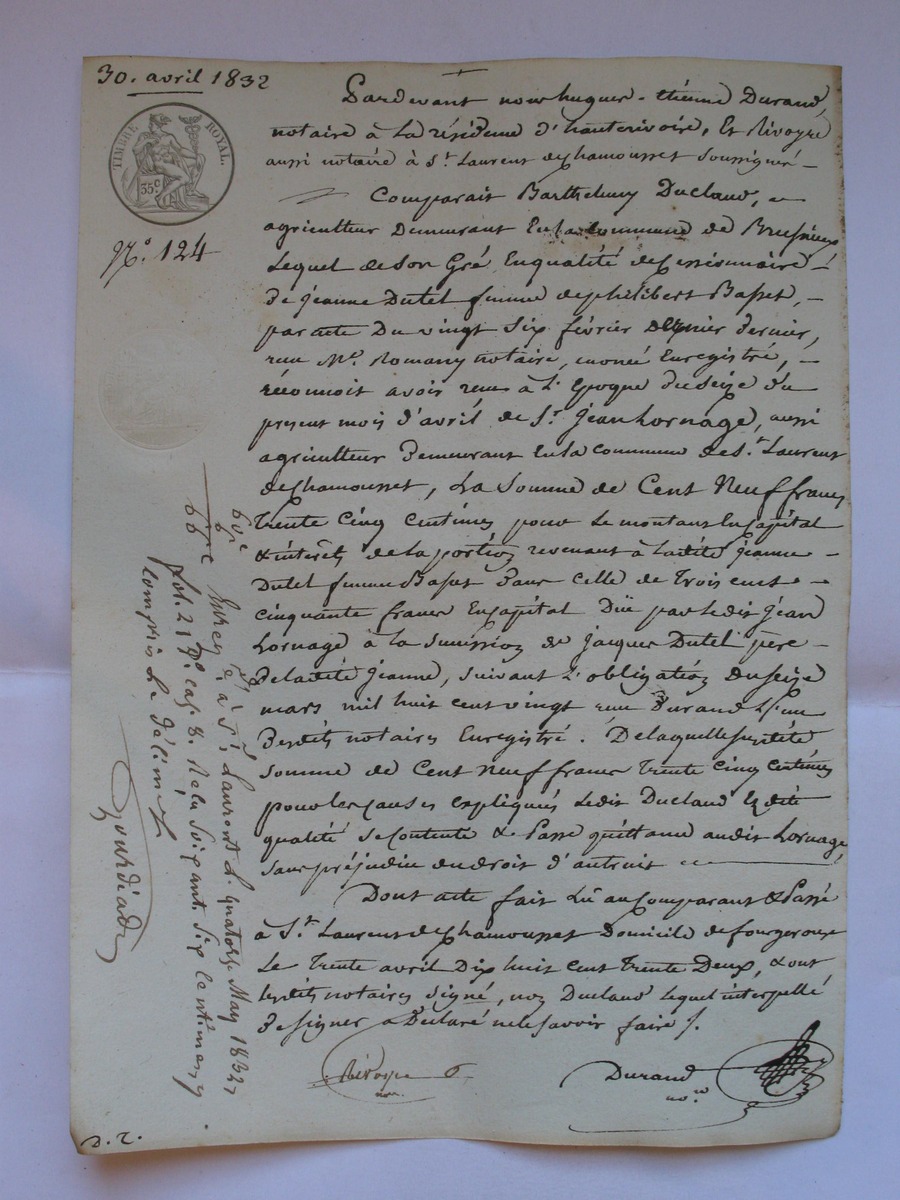 30. avril 1832
TIMBRE ROYAL.
35c.
N.o 124
Pardevant nous hugues-étienne Durand,
notaire à La résidence d'hauterivoire, Et Rivoyre
aussi notaire à S.t Laurent de Chamousset Soussignés -
Comparait Barthelemy Duclaud,
agriculteur Demeurant En la Commune de Brussieux
Lequel de Son Gré Enqualité de Cessionnaire -
de jeanne Dutel femme de philibert Basset, -
par acte Du vingt Six février dernier,
reçu M.e Romany notaire, Enregistré, -
réconnoit avoir reçu à L'Epoque du Seize du
present mois d'avril de S.r jean Lornage, aussi
agriculteur demeurant En la Commune de S.t Laurent
de Chamousset, La Somme de Cent Neuf francs
Trente Cinq Centimes pour Le montant En Capital
& intérêts de la portion revenant à Ladite jeanne -
Dutel femme Basset Dans Celle de Trois cent -
Cinquante francs En Capital Düe par Ledit jean
Lornage à la de jacques Dutel père -
de Ladite jeanne, Suivant L'obligation du Seize
mars mil huit cent vingt reçu Durand L'un
Desdits notaires Enregistré. De laquelle Susdite
Somme de Cent Neuf francs Trente Cinq Centimes
pour Les Causes Expliquées Ledit Duclaud En dite
qualité Se Contente & Passe quittance audit Lornage,
Sans préjudice du droit d'autruit
Dont acte fait Lû au Comparant & Passé
à S.t Laurent de Chamousset Domicile de fougeroux
Le Trente avril Dix huit cent Trente Deux, & ont
Lesdits notaires Signé, non Duclaud Lequel interpellé
de signer a Déclaré ne le Savoir faire /.
Rivoyre
nore.
Durand
no.re
60c
6
66c
à S.t Laurent L. quatorze May 1832,
fol. 21 cas. 8. Reçu Soixante Six Centimes
Compris Le Décime
Gourdiad
D. T.